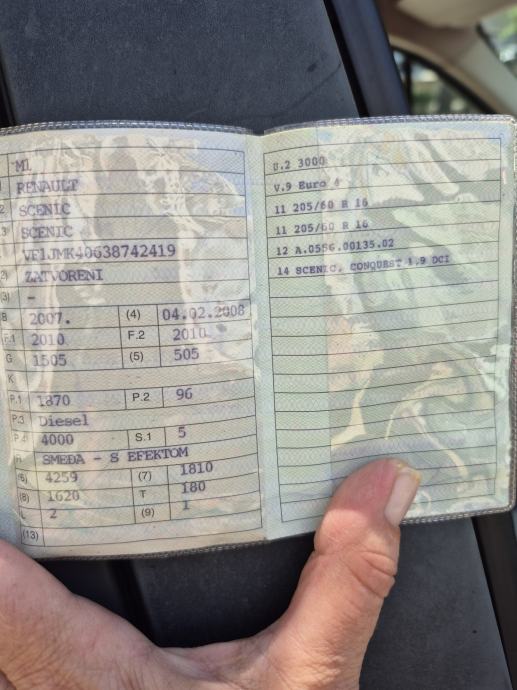 M1
RENAULT
2 SCENIC
3 SCENIC
VF1JMK40638742419
2) ZATVORENI
3) -
B 2007. (4) 04.02.2008
F.1 2010 F.2 2010
G 1505 (5) 505
K -
P.1 1870 P.2 96
P.3 Diesel
P.4 4000 S.1 5
R SMEĐA - S EFEKTOM
(6) 4259 (7) 1810
(8) 1620 T 180
L 2 (9) 1
(13)
U.2 3000
V.9 Euro 4
11 205/60 R 16
11 205/60 R 16
12 A.0556.00135.02
14 SCENIC, CONQUEST 1.9 DCI